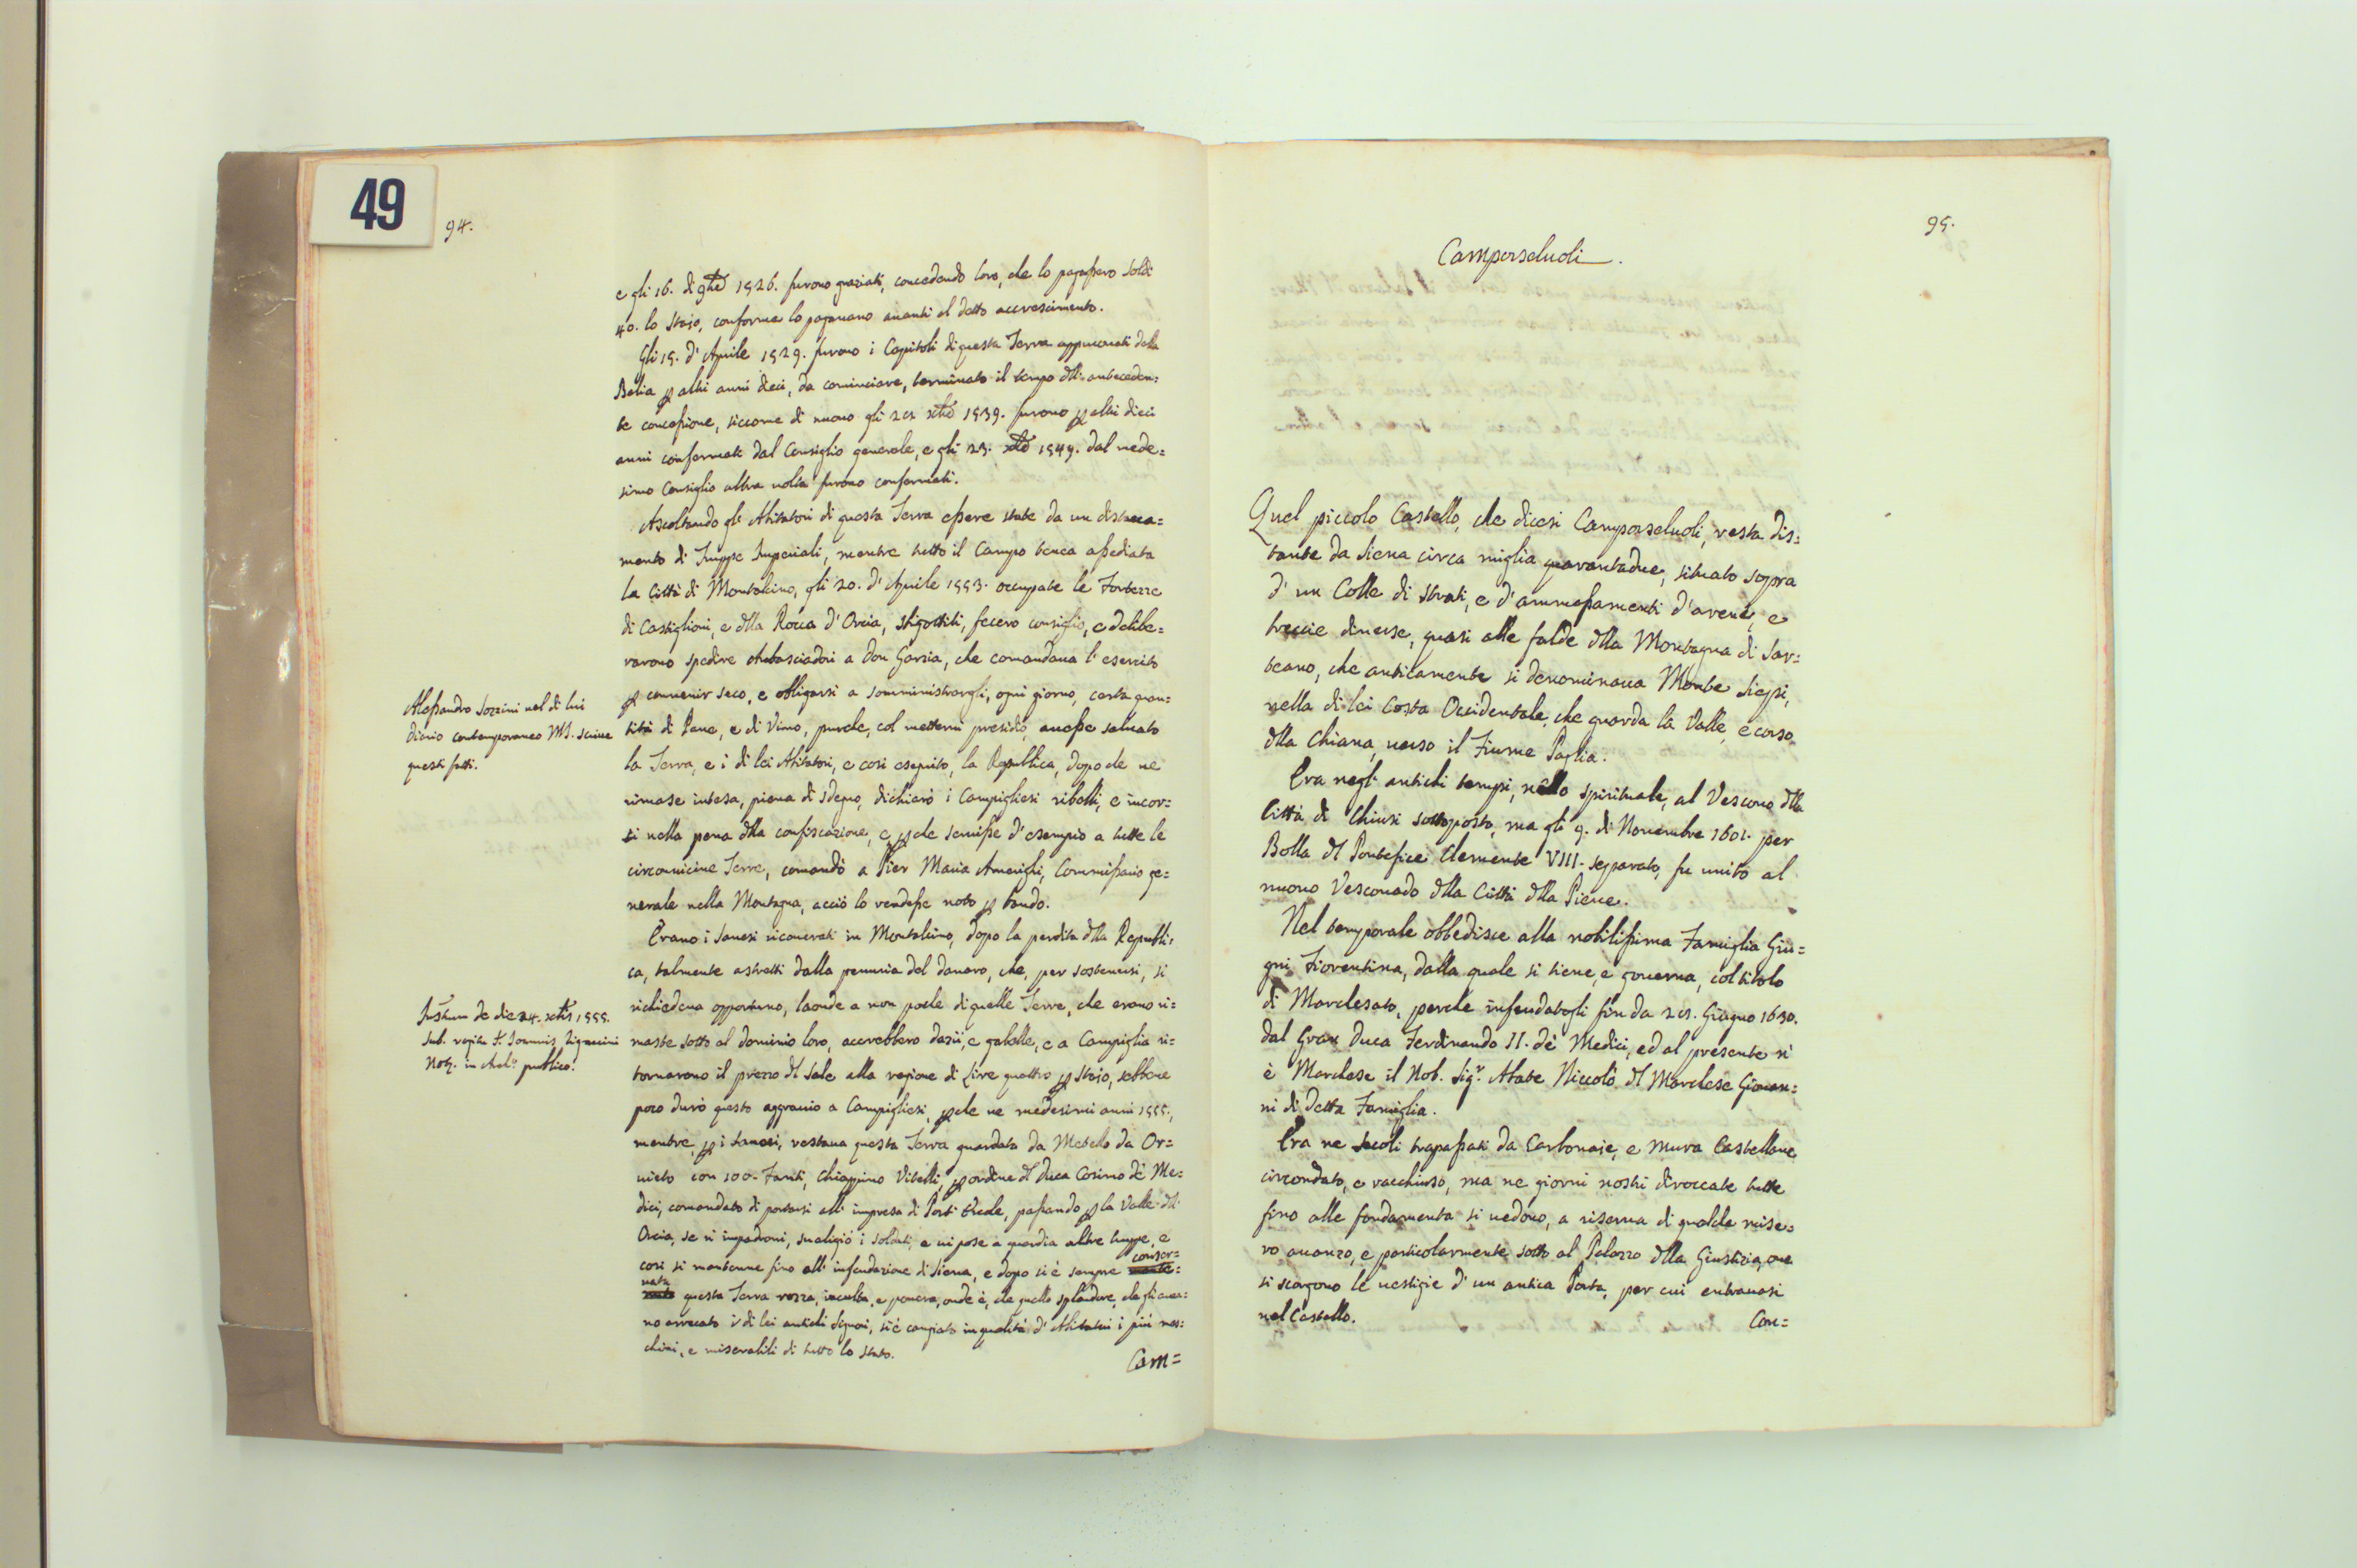 49
94.
e gli 16. di 9bre 1526. furono graziati, concedendo loro, che lo pagassero soldi
40. lo Stajo, conforme lo pagavano avanti il detto accrescimento.
Gli 15. d'Aprile 1529. furono i Capitoli di questa Terra approvati dalla
Balia per altri anni dieci, da cominciare, terminato il tempo dell'anteceden=
te concessione, siccome di nuovo gli 21 xbre 1539. furono per altri dieci
anni confermati dal Consiglio generale, e gli 23. xbre 1549. dal mede=
simo Consiglio altra volta furono confermati.
Ascoltando gl'Abitatori di questa Terra essere state da un distacca=
mento di Truppe Imperiali, mentre tutto il Campo tenea assediata
la Città di Montalcino, gli 20. d'Aprile 1553. occupate le Fortezze
di Castiglioni, e della Rocca d'Orcia, sbigottiti, fecero consiglio, e delibe=
rarono spedire Ambasciadori a Don Garzia, che comandava l'esercito
per convenir seco, e obbligarsi a somministrargli, ogni giorno, certa quan=
tità di Pane, e di Vino, purchè, col mettervi presidio, avesse salvato
la Terra, e i di lei Abitatori, e così eseguito, la Republica, dopo che ne
rimase intesa, piena di sdegno, dichiarò i Campigliesi ribelli, e incor=
si nella pena della confiscazione, e perchè servisse d'esempio a tutte le
circonvicine Terre, comandò a Pier Maria Amerighi, Commissario ge=
nerale nella Montagna, acciò lo rendesse noto per bando.
Erano i Sanesi ricoverati in Montalcino, dopo la perdita della Republi=
ca, talmente astretti dalla penuria del danaro, che, per sostenersi, si
richiedeva opportuno, laonde a non poche di quelle Terre, che erano ri=
maste sotto al dominio loro, accrebbero dazii, e gabelle, e a Campiglia ri=
tornarono il prezzo del Sale alla ragione di Lire quattro per Stajo, sebbene
poco durò questo aggravio a Campigliesi, perchè ne medesimi anni 1555.,
mentre, per i Sanesi, restava questa Terra guardata da Metello da Or=
vieto con 100. Fanti, Chiappino Vitelli, per ordine del Duca Cosimo de' Me=
dici, comandato di portarsi all'impresa di Port'Ercole, passando per la Valle dell'
Orcia, se ne impadronì, svaligiò i soldati, e vi pose a guardia altre truppe, e
così si mantenne fino all'infeudazione di Siena, e dopo si è sempre conser=
vata questa Terra rozza, inculta, e povera, onde è, che quello splendore, che gli avea=
no arrecato i di lei antichi Signori, si è cangiato in qualità d'Abitatori i più mes=
chini, e miserabili di tutto lo Stato.
Cam=
Alessandro Sozzini nel di lui
diario contemporaneo MS. scrive
questi fatti.
Instrum de die 24. xbris 1555.
sub. rogitu
Not. in Arch.o publico.
95.
Camporselvoli.
Quel piccolo Castello, che dicesi Camporselvoli, resta dis=
tante da Siena circa miglia quarantadue, situato sopra
d'un Colle di strati, e d'ammassamenti d'arene, e
breccie diverse, quasi alle falde della Montagna di Sar=
teano, che anticamente si denominava Monte Siepi,
nella di lei Costa Occidentale, che guarda la Valle, e corso
della Chiana, verso il Fiume Paglia.
Era negl'antichi tempi, nello spirituale, al Vescovo della
Città di Chiusi sottoposto, ma gli 9. di Novembre 1601. per
Bolla del Pontefice Clemente VIII. separato, fu unito al
nuovo Vescovado della Città della Pieve.
Nel temporale obbedisce alla nobilissima Famiglia Giu=
gni Fiorentina, dalla quale si tiene, e governa, col titolo
di Marchesato, perchè infeudatogli fin da 21. Giugno 1630.
dal Gran Duca Ferdinando II. de' Medici, ed al presente n'
è Marchese il Nob. Sig.r Abate Niccolò del Marchese Giovan=
ni di detta Famiglia.
Era ne secoli trapassati da Carbonaie, e Mura Castellane
circondato, e racchiuso, ma ne giorni nostri diroccate tutte
fino alle fondamenta si vedono, a riserva di qualche mise=
ro avanzo, e particolarmente sotto al Palazzo della Giustizia, ove
si scorgono le vestigie d'un antica Porta, per cui entravasi
nel Castello.
Con=